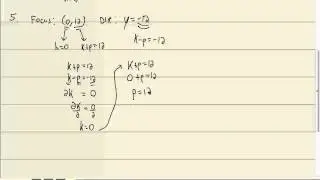 5. Focus: (0,12) DIR: y=-12
h=0 k+p=12 k-p=-12
k+p=12 k+p=12
k-p=-12 0+p=12
2k = 0 p=12
2k/2 = 0/2
k=0